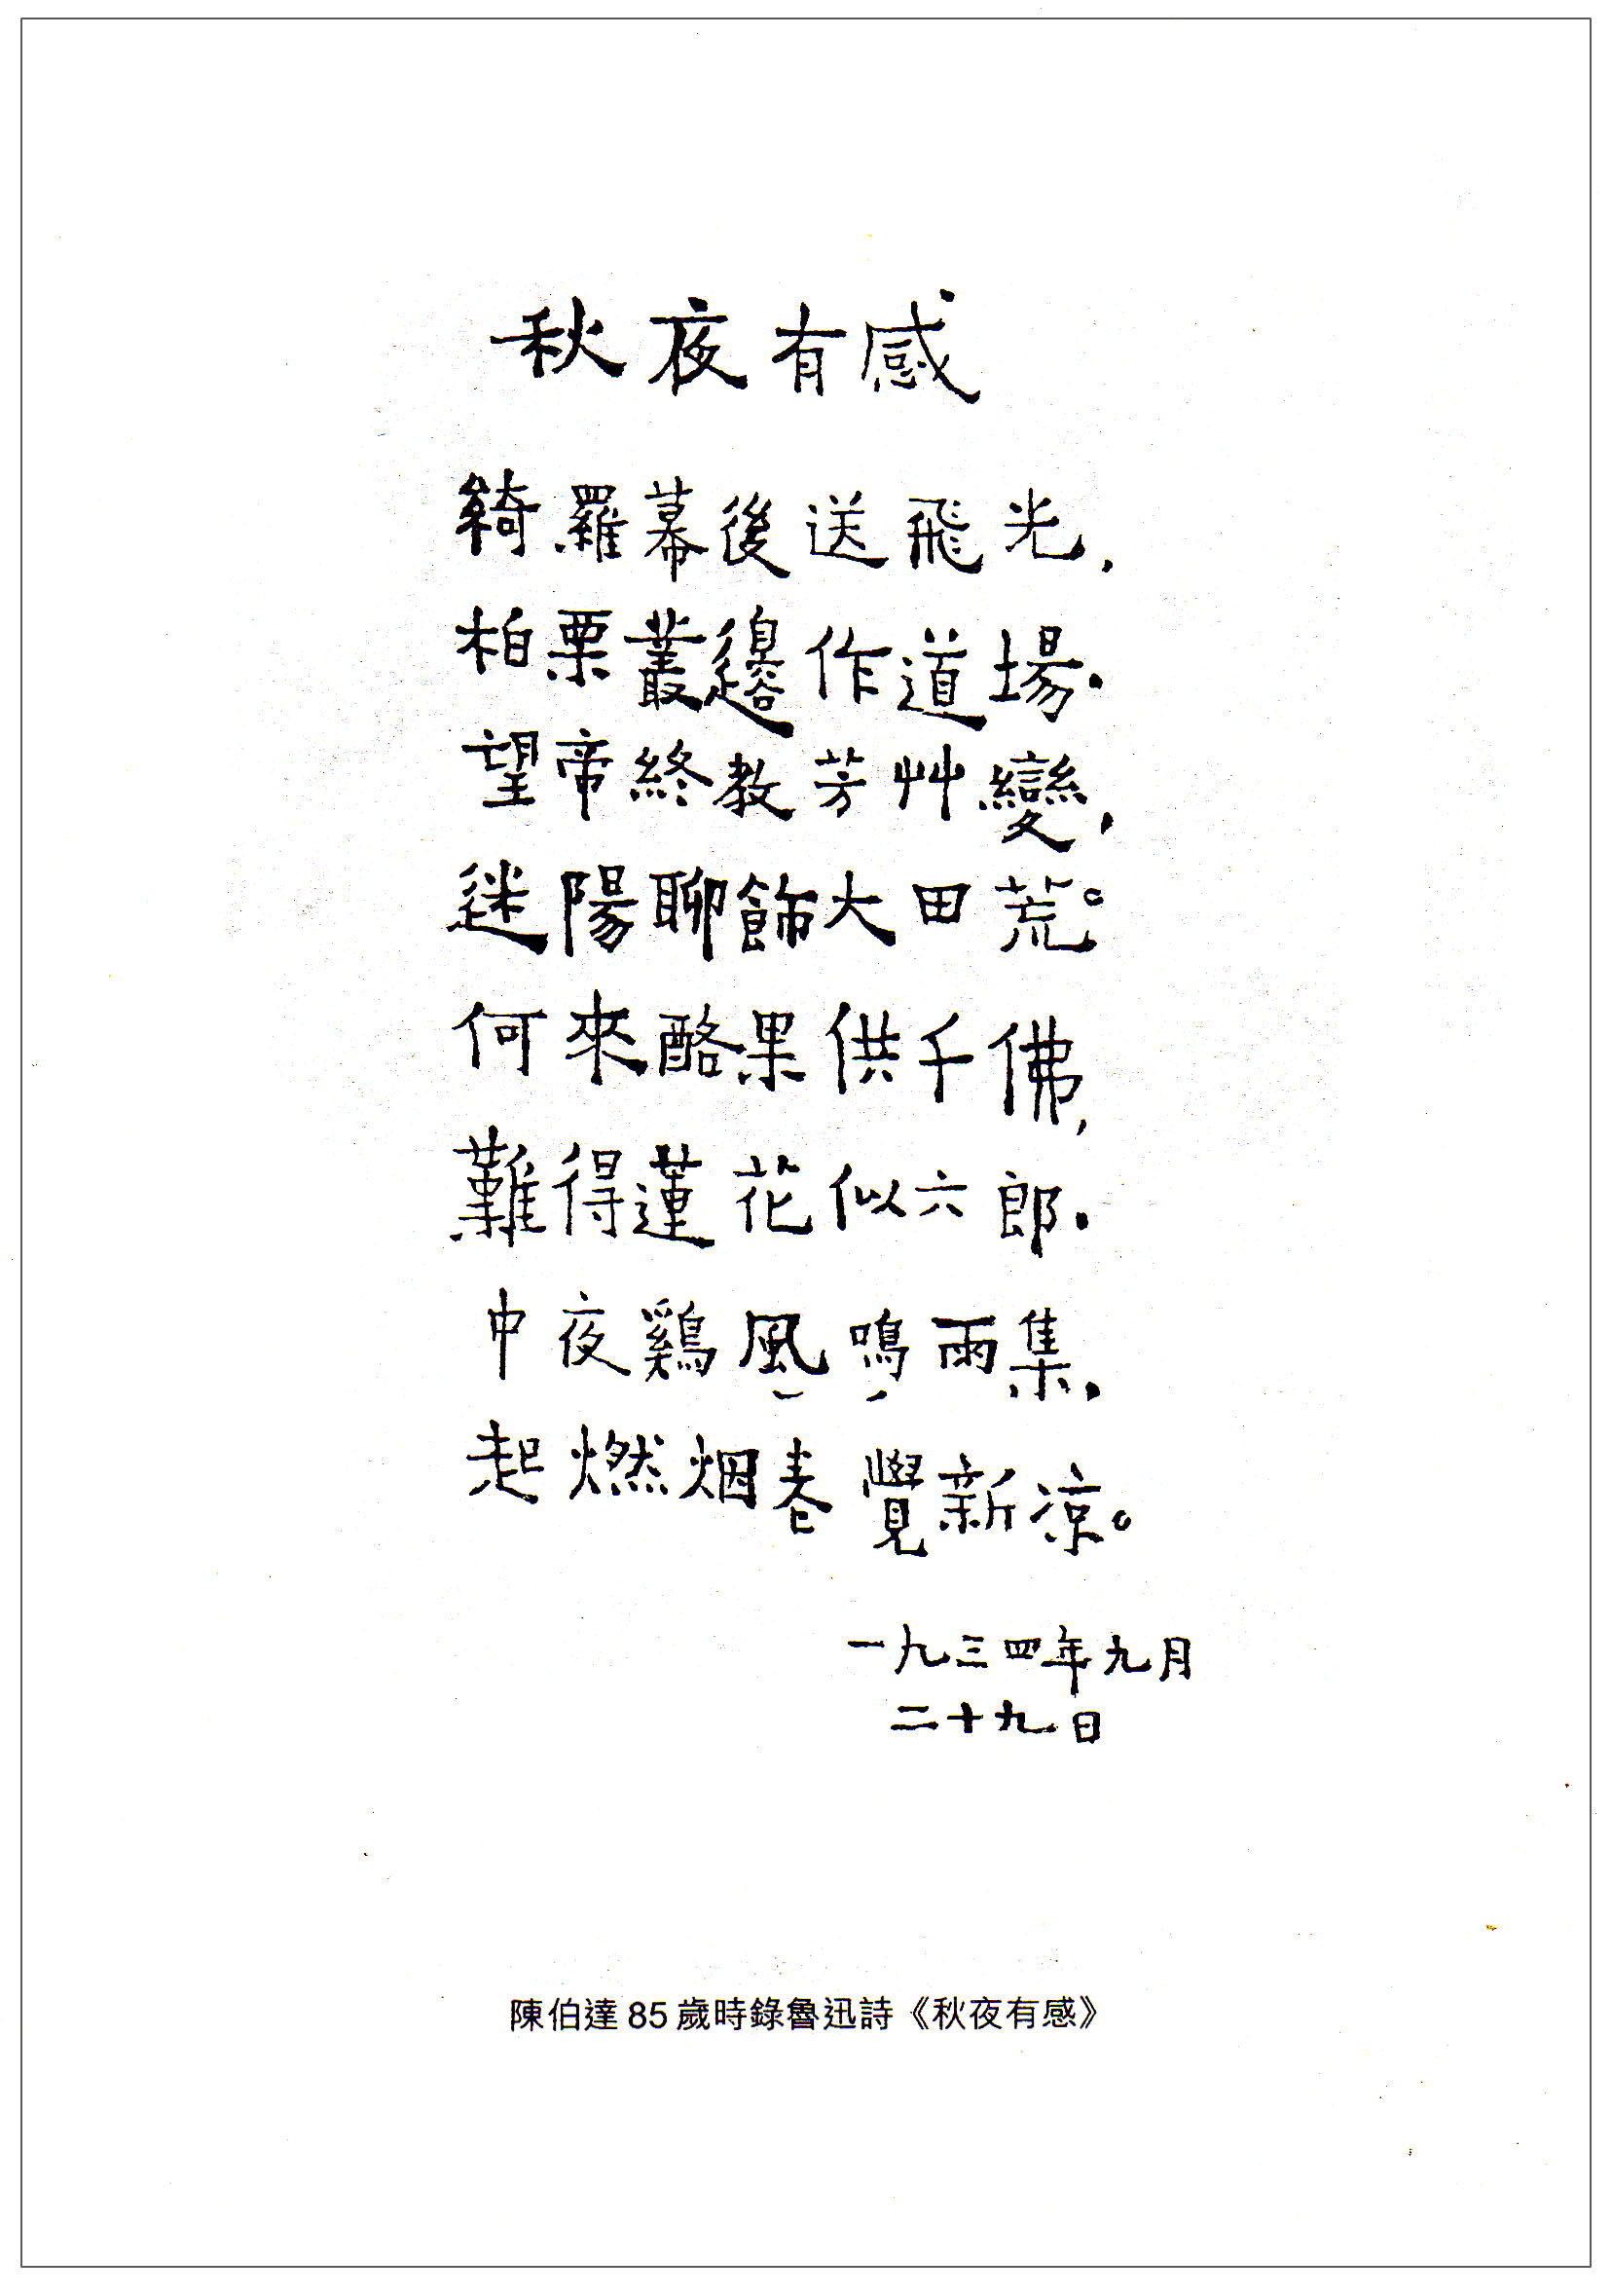 秋夜有感
綺羅幕後送飛光，
柏栗叢邊作道場．
望帝終教芳艸變，
迷陽聊飾大田荒。
何來酪果供千佛，
難得蓮花似六郎．
中夜鷄風鳴雨集，
起燃烟卷覺新凉。
一九三四年九月
二十九日
陳伯達85歲時錄魯迅詩《秋夜有感》